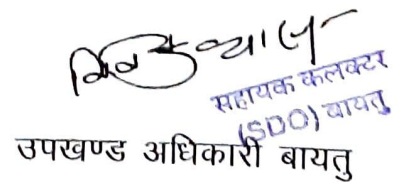 व्यास
सहायक कलक्टर
(SDO) बायतु
उपखण्ड अधिकारी बायतु